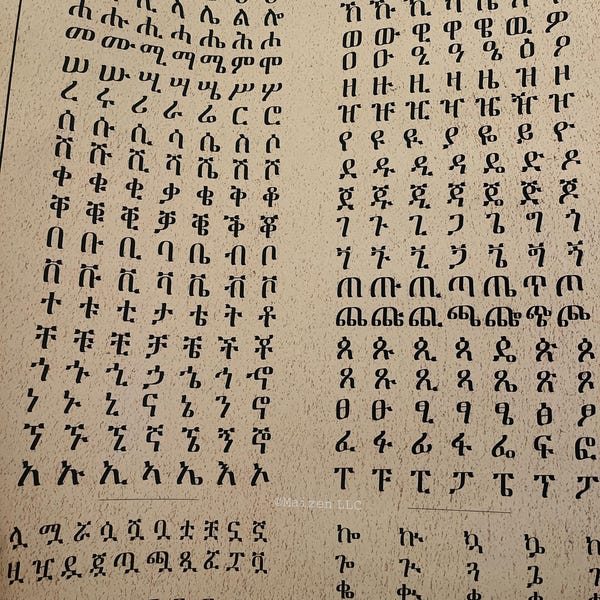 ላ ሌ ል ሎ
ሐ ሑ ሒ ሓ ሔ ሕ ሖ
መ ሙ ሚ ማ ሜ ም ሞ
ሠ ሡ ሢ ሣ ሤ ሥ ሦ
ረ ሩ ሪ ራ ሬ ር ሮ
ሰ ሱ ሲ ሳ ሴ ስ ሶ
ሸ ሹ ሺ ሻ ሼ ሽ ሾ
ቀ ቁ ቂ ቃ ቄ ቅ ቆ
ቐ ቑ ቒ ቓ ቔ ቕ ቖ
በ ቡ ቢ ባ ቤ ብ ቦ
ቨ ቩ ቪ ቫ ቬ ቭ ቮ
ተ ቱ ቲ ታ ቴ ት ቶ
ቸ ቹ ቺ ቻ ቼ ች ቾ
ኀ ኁ ኂ ኃ ኄ ኅ ኆ
ነ ኑ ኒ ና ኔ ን ኖ
ኘ ኙ ኚ ኛ ኜ ኝ ኞ
አ ኡ ኢ ኣ ኤ እ ኦ
ሏ ሟ ሯ ሷ ሿ ቧ ቷ ቿ ኗ ኟ
ዟ ዧ ዷ ጇ ጧ ጯ ጿ ፏ ፗ ቯ
ኸ ኹ ኺ ኻ ኼ ኽ
ወ ዉ ዊ ዋ ዌ ው ዎ
ዐ ዑ ዒ ዓ ዔ ዕ ዖ
ዘ ዙ ዚ ዛ ዜ ዝ ዞ
ዠ ዡ ዢ ዣ ዤ ዥ ዦ
የ ዩ ዪ ያ ዬ ይ ዮ
ደ ዱ ዲ ዳ ዴ ድ ዶ
ጀ ጁ ጂ ጃ ጄ ጅ ጆ
ገ ጉ ጊ ጋ ጌ ግ ጎ
ጘ ጙ ጚ ጛ ጜ ጝ ጞ
ጠ ጡ ጢ ጣ ጤ ጥ ጦ
ጨ ጩ ጪ ጫ ጬ ጭ ጮ
ጰ ጱ ጲ ጳ ጴ ጵ ጶ
ጸ ጹ ጺ ጻ ጼ ጽ ጾ
ፀ ፁ ፂ ፃ ፄ ፅ ፆ
ፈ ፉ ፊ ፋ ፌ ፍ ፎ
ፐ ፑ ፒ ፓ ፔ ፕ ፖ
©Maizen LLC
ኰ ኲ ኳ ኴ
ጐ ጒ ጓ ጔ